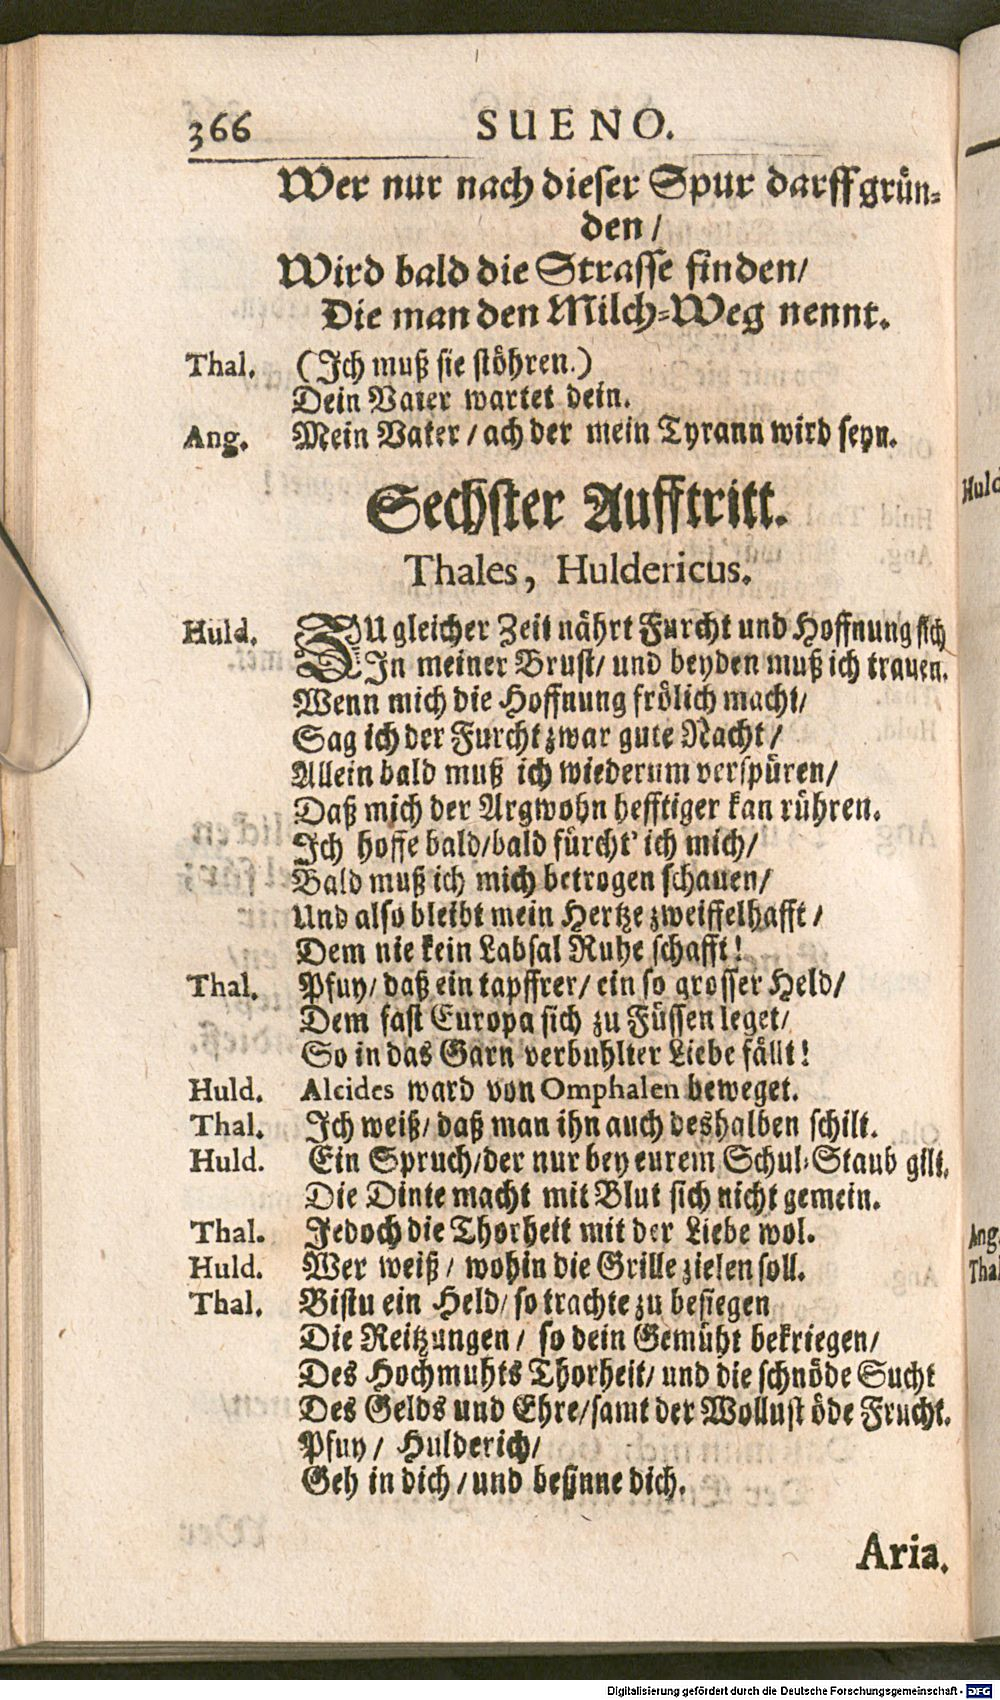 366 SUENO.
Wer nur nach dieser Spur darff grün-
den/
Wird bald die Strasse finden/
Die man den Milch-Weg nennt.
Thal. (Ich muß sie stöhren.)
Dein Vater wartet dein.
Ang. Mein Vater/ ach der mein Tyrann wird seyn.
Sechster Aufftritt.
Thales, Huldericus.
Huld. ZU gleicher Zeit nährt Furcht und Hoffnung sich
In meiner Brust/ und beyden muß ich trauen.
Wenn mich die Hoffnung frölich macht/
Sag ich der Furcht zwar gute Nacht/
Allein bald muß ich wiederum verspüren/
Daß mich der Argwohn hefftiger kan rühren.
Ich hoffe bald/ bald fürcht' ich mich/
Bald muß ich mich betrogen schauen/
Und also bleibt mein Hertze zweiffelhafft/
Dem nie kein Labsal Ruhe schafft!
Thal. Pfuy/ daß ein tapffrer/ ein so grosser Held/
Dem fast Europa sich zu Füssen leget/
So in das Garn verbuhlter Liebe fällt!
Huld. Alcides ward von Omphalen beweget.
Thal. Ich weiß/ daß man ihn auch deshalben schilt.
Huld. Ein Spruch/ der nur bey eurem Schul-Staub gilt.
Die Dinte macht mit Blut sich nicht gemein.
Thal. Jedoch die Thorheit mit der Liebe wol.
Huld. Wer weiß/ wohin die Grille zielen soll.
Thal. Bistu ein Held/ so trachte zu besiegen
Die Reitzungen/ so dein Gemüht bekriegen/
Des Hochmuhts Thorheit/ und die schnöde Sucht
Des Gelds und Ehre/ samt der Wollust öde Frucht.
Pfuy/ Hulderich/
Geh in dich/ und besinne dich.
Aria.
Huld
Ang.
Thal
Digitalisierung gefördert durch die Deutsche Forschungsgemeinschaft - DFG